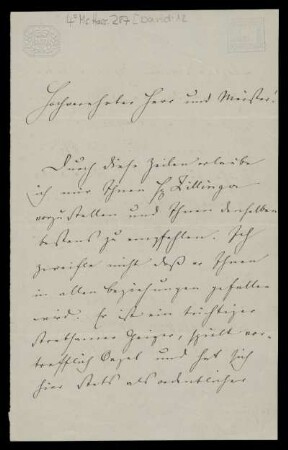 4° Ms. Hass. 287 [David: 12
Hochverehrter Herr und Meister!
Durch diese Zeilen erlaube
ich mir Ihnen H. Zillinger
vorzustellen und Ihnen denselben
bestens zu empfehlen. Ich
zweifle nicht daß er Ihnen
in allen Beziehungen gefallen
wird. Er ist ein tüchtiger
Geiger, spielt vor-
trefflich Orgel und hat sich
hier stets als ordentlicher